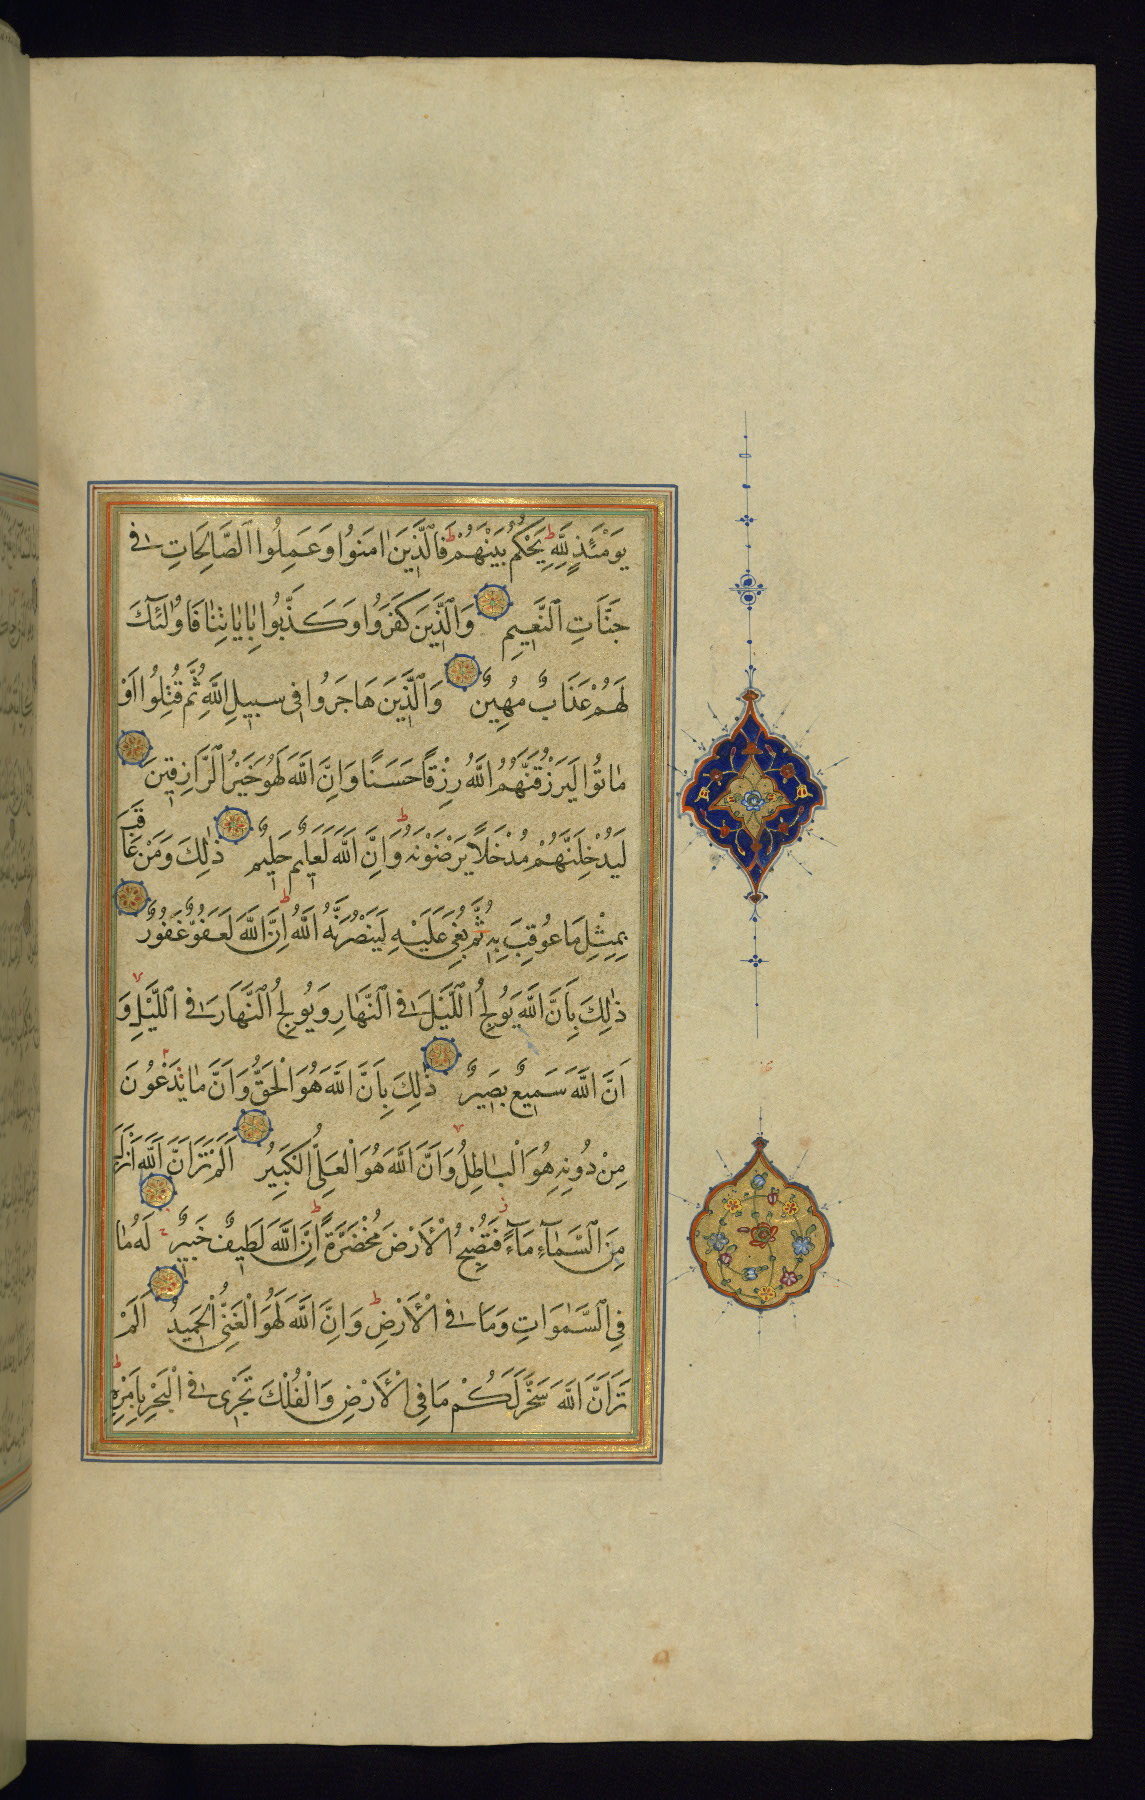 يَوْمَئِذٍ لِلَّهِ يَحْكُمُ بَيْنَهُمْ فَالَّذِينَ اٰمَنُوا وَعَمِلُوا الصَّالِحَاتِ فِي
جَنَّاتِ النَّعِيمِ وَالَّذِينَ كَفَرُوا وَكَذَّبُوا بِاٰيَاتِنَا فَاُولٰئِكَ
لَهُمْ عَذَابٌ مُهِينٌ وَالَّذِينَ هَاجَرُوا فِي سَبِيلِ اللَّهِ ثُمَّ قُتِلُوا اَوْ
مَاتُوا لَيَرْزُقَنَّهُمُ اللَّهُ رِزْقًا حَسَنًا وَاِنَّ اللَّهَ لَهُوَ خَيْرُ الرَّازِقِينَ
لَيُدْخِلَنَّهُمْ مُدْخَلًا يَرْضَوْنَهُ وَاِنَّ اللَّهَ لَعَلِيمٌ حَلِيمٌ ذٰلِكَ وَمَنْ عَاقَبَ
بِمِثْلِ مَا عُوقِبَ بِهِ ثُمَّ بُغِيَ عَلَيْهِ لَيَنْصُرَنَّهُ اللَّهُ اِنَّ اللَّهَ لَعَفُوٌّ غَفُورٌ
ذٰلِكَ بِاَنَّ اللَّهَ يُولِجُ اللَّيْلَ فِي النَّهَارِ وَيُولِجُ النَّهَارَ فِي اللَّيْلِ وَ
اَنَّ اللَّهَ سَمِيعٌ بَصِيرٌ ذٰلِكَ بِاَنَّ اللَّهَ هُوَ الْحَقُّ وَاَنَّ مَا يَدْعُونَ
مِنْ دُونِهِ هُوَ الْبَاطِلُ وَاَنَّ اللَّهَ هُوَ الْعَلِيُّ الْكَبِيرُ اَلَمْ تَرَ اَنَّ اللَّهَ اَنْزَلَ
مِنَ السَّمَاءِ مَاءً فَتُصْبِحُ الْاَرْضُ مُخْضَرَّةً اِنَّ اللَّهَ لَطِيفٌ خَبِيرٌ لَهُ مَا
فِي السَّمٰوَاتِ وَمَا فِي الْاَرْضِ وَاِنَّ اللَّهَ لَهُوَ الْغَنِيُّ الْحَمِيدُ اَلَمْ
تَرَ اَنَّ اللَّهَ سَخَّرَ لَكُمْ مَا فِي الْاَرْضِ وَالْفُلْكَ تَجْرِي فِي الْبَحْرِ بِاَمْرِهِ